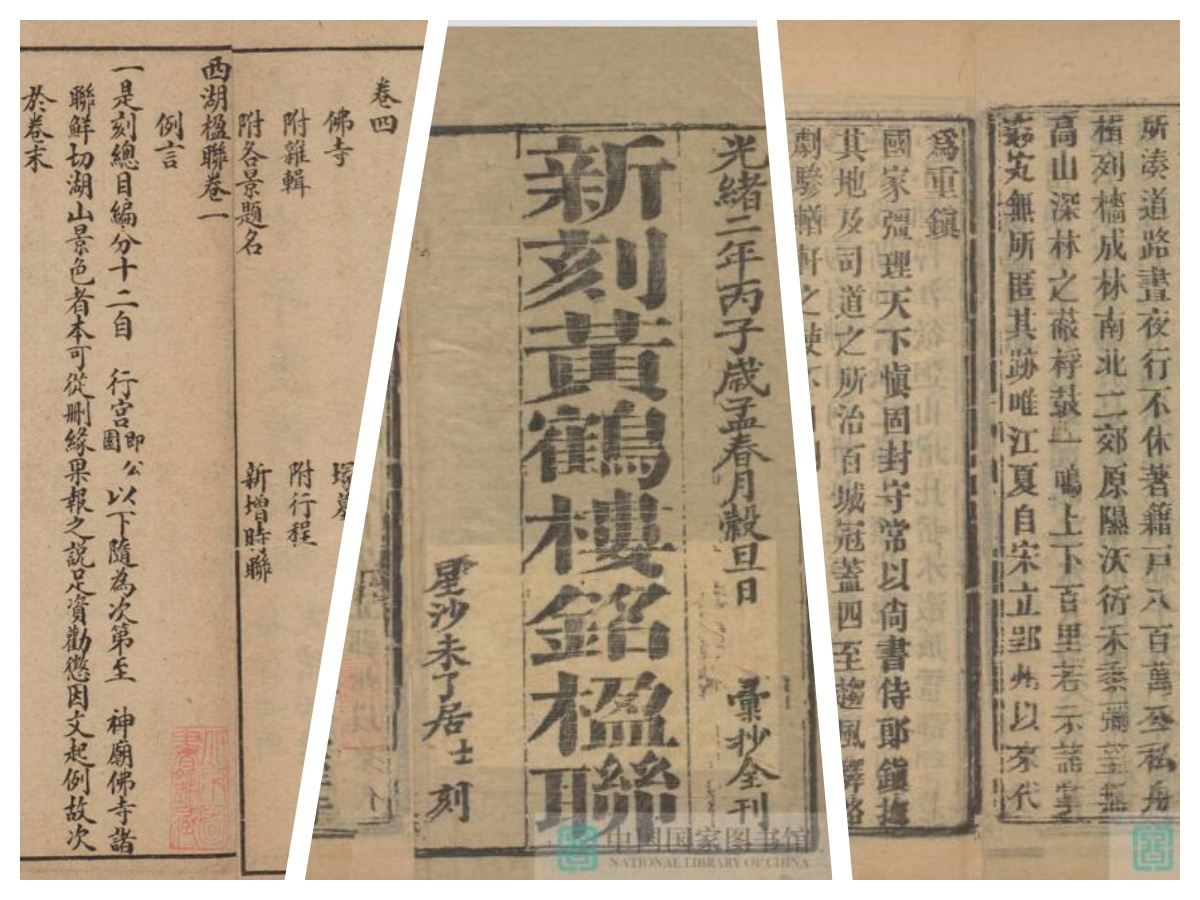 卷四
佛寺 塚墓
附雜輯 附行程
附各景題名 新增時聯
西湖楹聯卷一
例言
一是刻總目編分十二自 行宮即公園以下隨為次第至 神廟佛寺諸
聯鮮切湖山景色者本可從刪緣果報之說足資勸懲因文起例故次
於卷末
光緒二年丙子歲孟春月穀旦日 彙抄全刊
新刻黃鶴樓銘楹聯
星沙未了居士刻
中国国家图书馆
NATIONAL LIBRARY OF CHINA
所湊道路晝夜行不休著籍戶八百萬公私舟
楫列檣成林南北二郊原隰沃衍禾黍彌望無
高山深林之蔽桴鼓一鳴上下百里若示諸掌
姦宄無所匿其跡唯江夏自宋立郢州以來代
爲重鎮
國家彊理天下愼固封守常以尙書侍郎鎮撫
其地及司道之所治百城冠蓋四至趨風驛路
劇驂輶軒之使